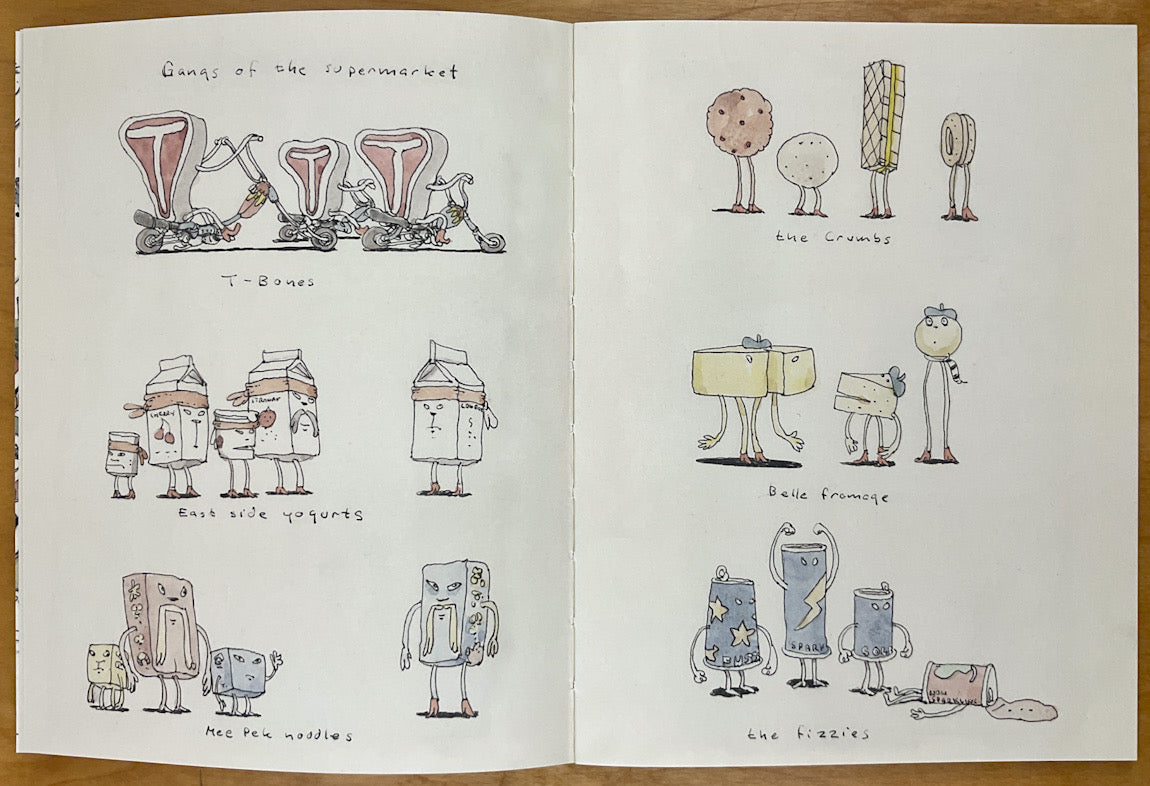 Gangs of the supermarket
T-Bones
CHERRY
East side yogurts
Mee Pek noodles
the Crumbs
Belle fromage
SPARK
NON
SPARKLING
the fizzies